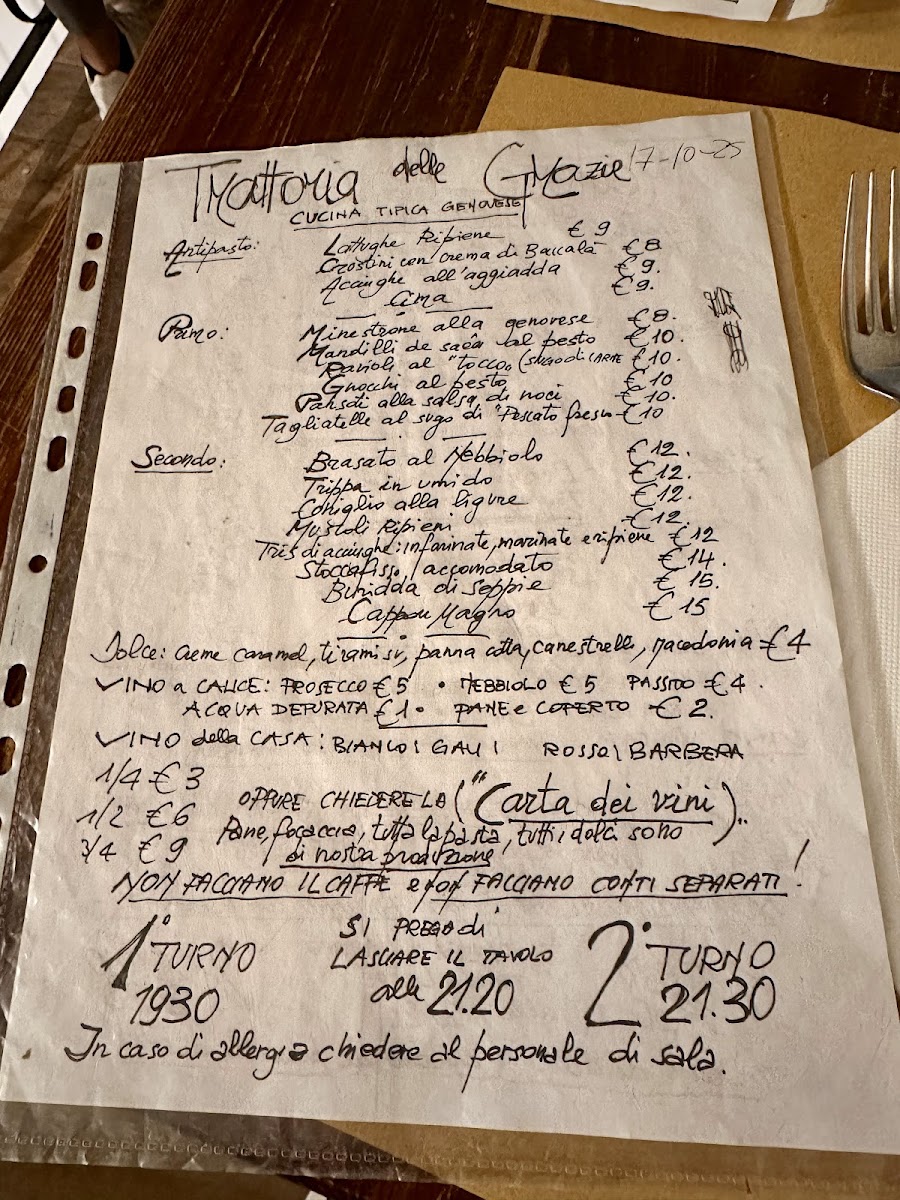 Trattoria delle Grazie 17-10-25
CUCINA TIPICA GENOVESE
Antipasto: Lattughe Ripiene € 9
Crostini con crema di Baccalà € 8
Acciughe all'aggiadda € 9.
Cima € 9.
Primo: Minestrone alla genovese € 8.
Mandilli de saêa al pesto € 10.
Ravioli al "tocco„ (sugo di CARNE € 10.
Gnocchi al pesto € 10
Pansoti alla salsa di noci € 10.
Tagliatelle al sugo di "Pescato fresco € 10
Secondo: Brasato al Nebbiolo € 12.
Trippa in umido € 12.
Coniglio alla ligure € 12.
Muscoli Ripieni € 12.
Tris di acciughe: infarinate, marinate e ripiene € 12
Stoccafisso accomodato € 14.
Buridda di seppie € 15.
Cappon Magro € 15
Dolce: creme caramel, tiramisu, panna cotta, canestrelli, macedonia € 4
VINO a CALICE: PROSECCO € 5 • NEBBIOLO € 5 PASSITO € 4.
ACQUA DEPURATA € 1 • PANE e COPERTO € 2.
VINO della CASA: BIANCO | GAVI | ROSSO | BARBERA
1/4 € 3
1/2 € 6
3/4 € 9
OPPURE CHIEDERE LA ("Carta dei vini)..
Pane, focaccia, tutta la pasta, tutti i dolci sono
di nostra produzione
NON FACCIAMO IL CAFFÈ e non FACCIAMO CONTI SEPARATI!
1° TURNO
1930
SI PREGA di
LASCIARE IL TAVOLO
alle 21.20
2° TURNO
21.30
In caso di allergie chiedere al personale di sala.